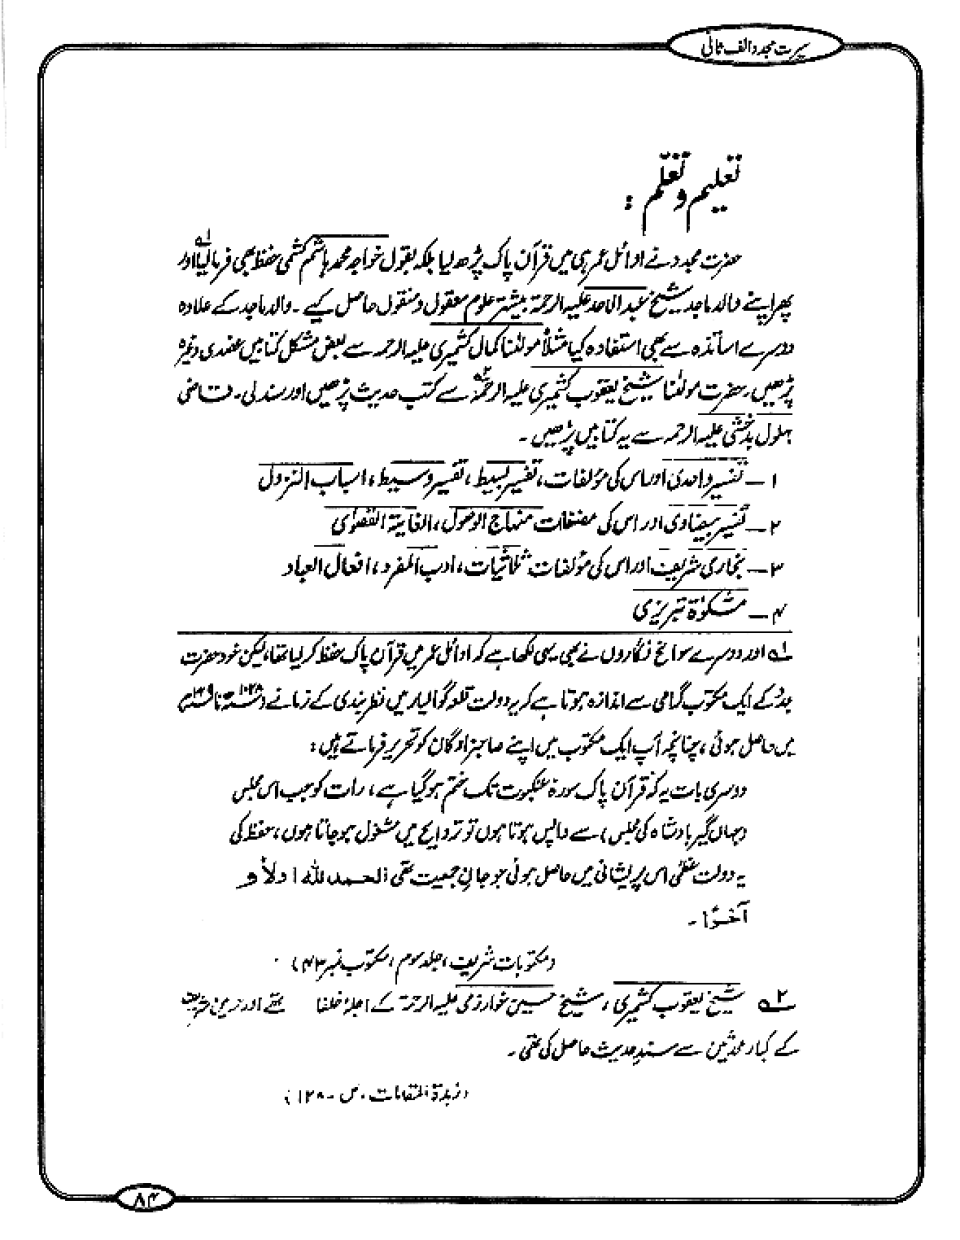 سیرت مجدد الف ثانی
تعلیم و تعلّم :
حضرت مجدد نے اوائل عمر ہی میں قرآن پاک پڑھ لیا بلکہ بقول خواجہ محمد ہاشم کشمی حفظ بھی فرمالیا۱ اور
پھر اپنے والد ماجد شیخ عبدالاحد علیہ الرحمۃ بیشتر علوم معقول و منقول حاصل کیے ۔ والد ماجد کے علاوہ
دوسرے اساتذہ سے بھی استفادہ کیا مثلاً مولٰنا کمال کشمیری علیہ الرحمہ سے بعض مشکل کتابیں عضدی وغیرہ
پڑھیں، حضرت مولٰنا شیخ یعقوب کشمیری علیہ الرحمۃ۲ سے کتب حدیث پڑھیں اور سند لی۔ قاضی
بہلول بدخشی علیہ الرحمہ سے یہ کتابیں پڑھیں ۔
۱ ـ تفسیر واحدی اور اس کی مؤلفات، تفسیر بسیط، تفسیر وسیط، اسباب النزول
۲ ـ تفسیر بیضاوی اور اس کی مصنفات منہاج الوصول، الغایۃ القصوٰی
۳ ـ بخاری شریف اور اس کی مؤلفات ثلاثیات، ادب المفرد، افعال العباد
۴ ـ مشکوٰۃ تبریزی
۱ اور دوسرے سوانح نگاروں نے بھی یہی لکھا ہے کہ اوائل عمر میں قرآن پاک حفظ کر لیا تھا، لیکن خود حضرت
مجدد کے ایک مکتوب گرامی سے اندازہ ہوتا ہے کہ یہ دولت قلعہ گوالیار میں نظربندی کے زمانے ۱۰۲۸ تا ۱۰۲۹
میں حاصل ہوئی، چنانچہ آپ ایک مکتوب میں اپنے صاحبزادگان کو تحریر فرماتے ہیں :
دوسری بات یہ کہ قرآن پاک سورۂ عنکبوت تک ختم ہو گیا ہے، رات کو جب اس مجلس
(جہاں گیر بادشاہ کی مجلس) سے واپس ہوتا ہوں تو تراویح میں مشغول ہو جاتا ہوں، حفظ کی
یہ دولت عظمٰی اس پریشانی میں حاصل ہوئی جو جان جمعیت تھی الحمد للہ اولاً و
آخراً ۔
(مکتوبات شریف، جلد سوم، مکتوب نمبر ۴۳)
۲ شیخ یعقوب کشمیری، شیخ حسین خوارزمی علیہ الرحمۃ کے اجلۂ خلفا تھے اور حرمین شریفین
کے کبار محدثین سے سند حدیث حاصل کی تھی ۔
(زبدۃ المقامات، ص ۔ ۱۲۸)
۸۴